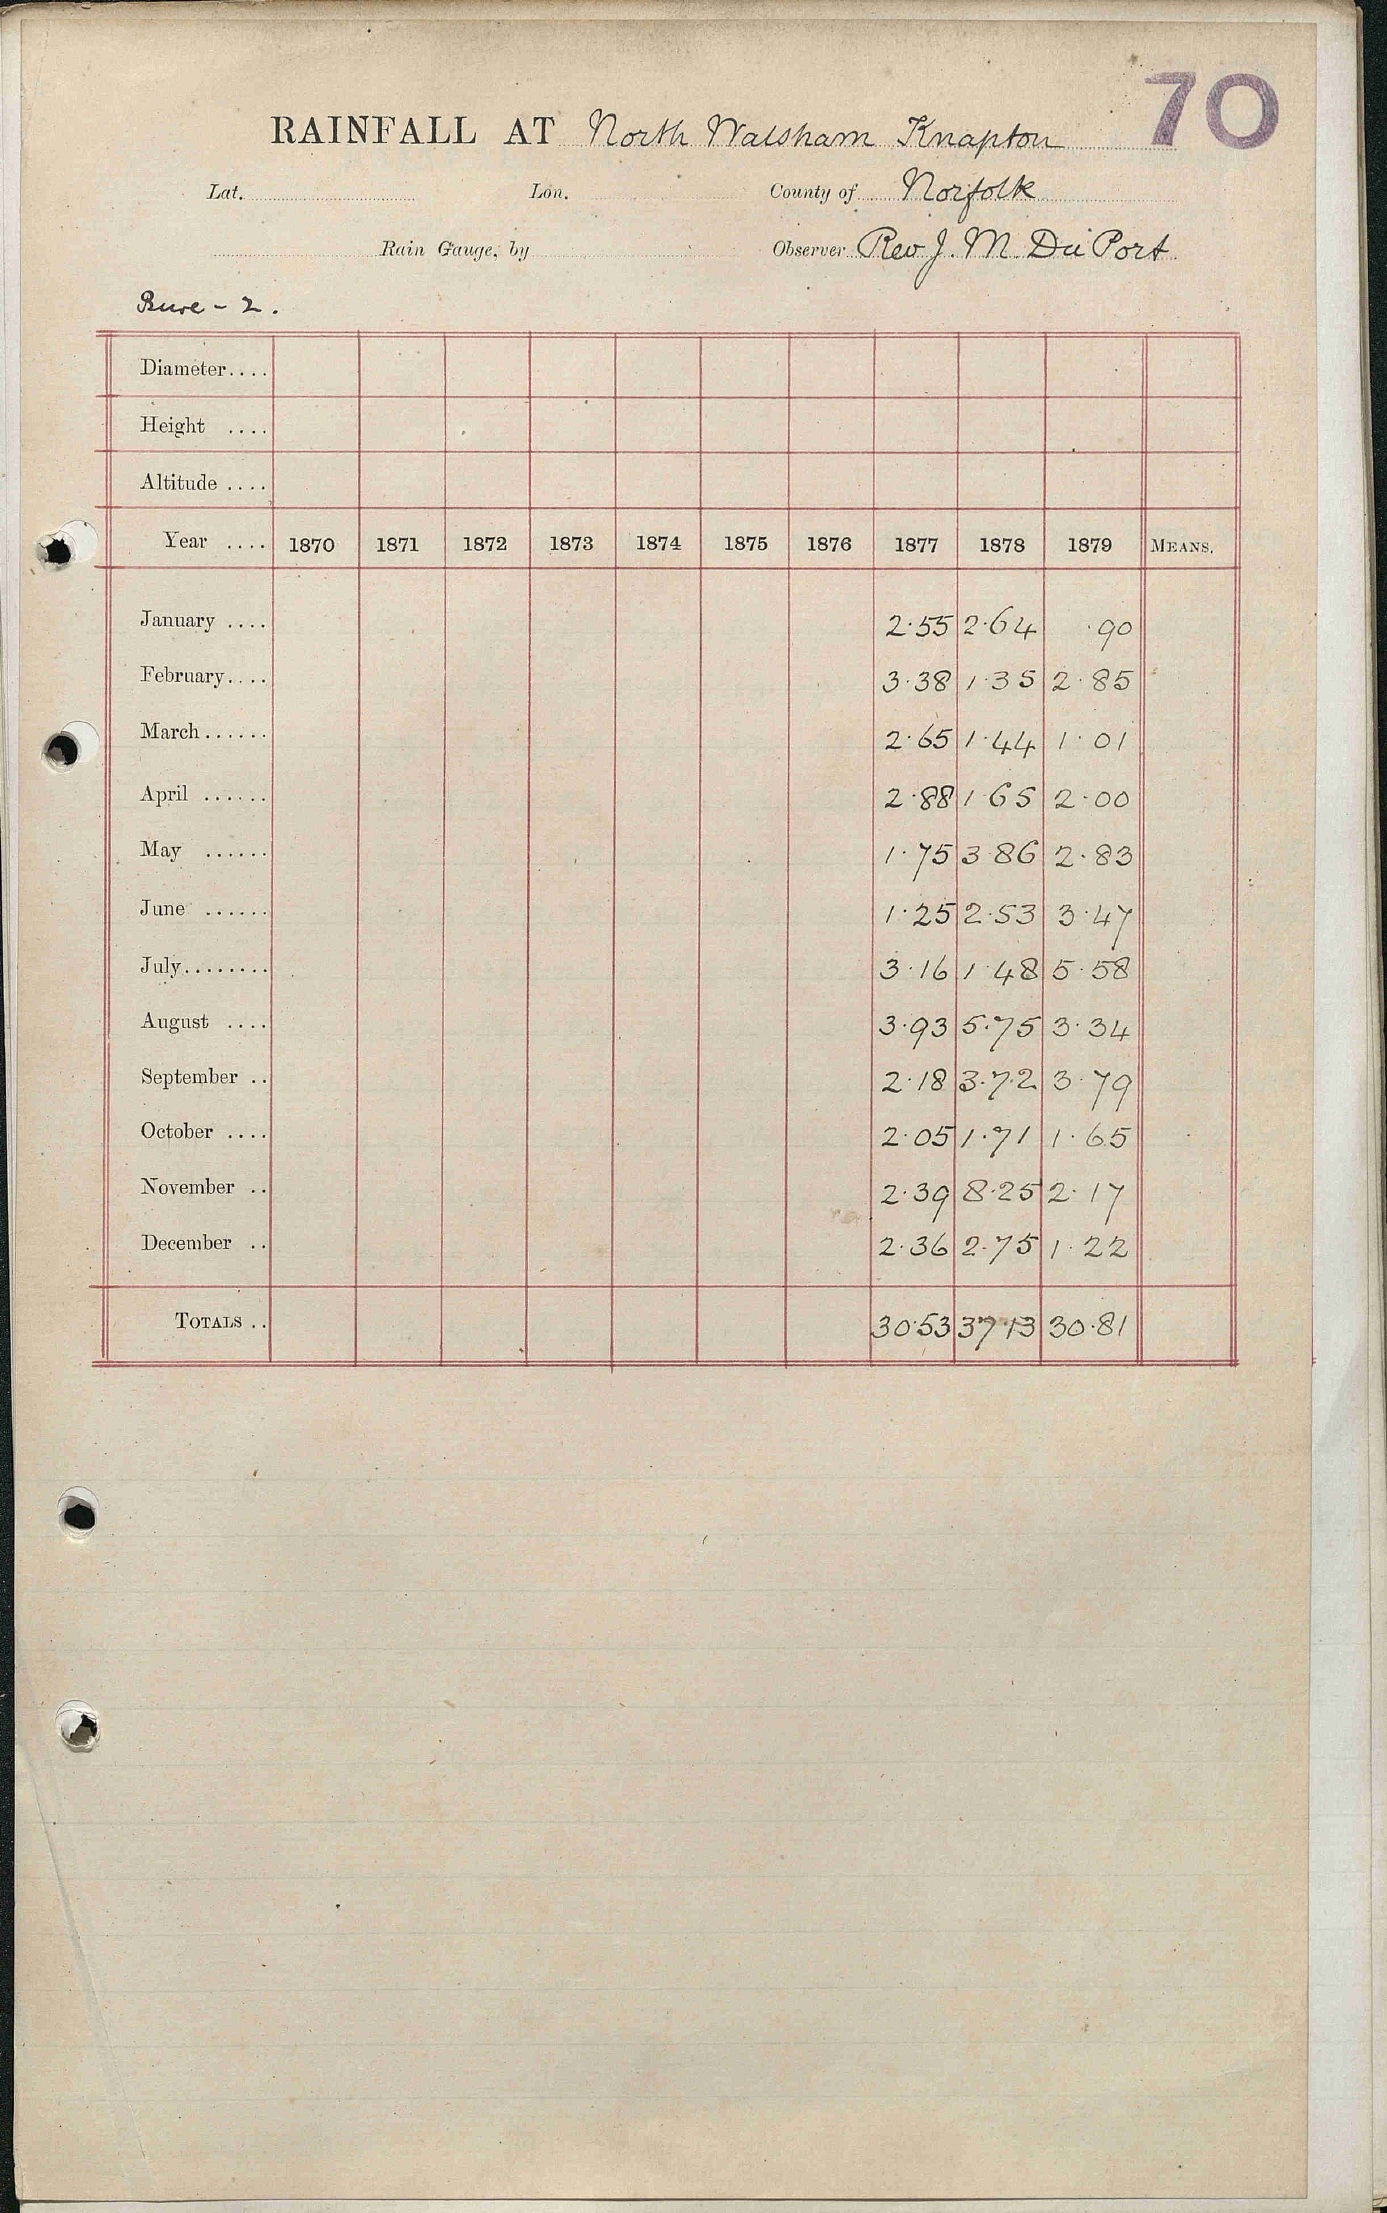 70
RAINFALL AT North Walsham Knapton
Lat. Lon. County of Norfolk
Rain Gauge, by Observer Rev J. M. Du Port
Bure - 2.
Diameter....
Height ....
Altitude ....
Year .... 1870 1871 1872 1873 1874 1875 1876 1877 1878 1879 MEANS.
January .... 2.55 2.64 .90
February.... 3.38 1.35 2.85
March...... 2.65 1.44 1.01
April ...... 2.88 1.65 2.00
May ...... 1.75 3.86 2.83
June ...... 1.25 2.53 3.47
July........ 3.16 1.48 5.58
August .... 3.93 5.75 3.34
September .. 2.18 3.72 3.79
October .... 2.05 1.71 1.65
November .. 2.39 8.25 2.17
December .. 2.36 2.75 1.22
TOTALS .. 30.53 37.13 30.81